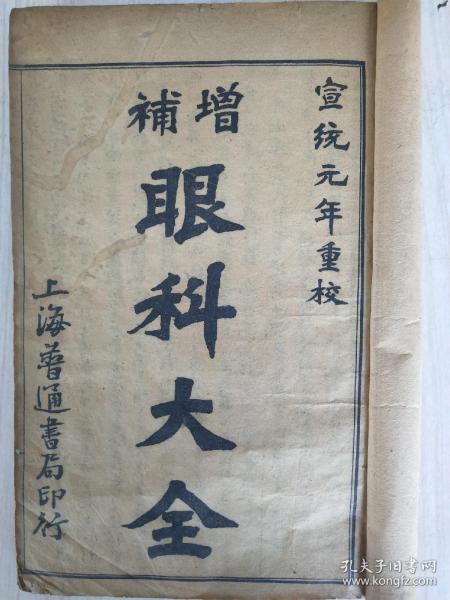 宣統元年重校
增補
眼科大全
上海普通書局印行
孔夫子旧书网
www.kongfz.com